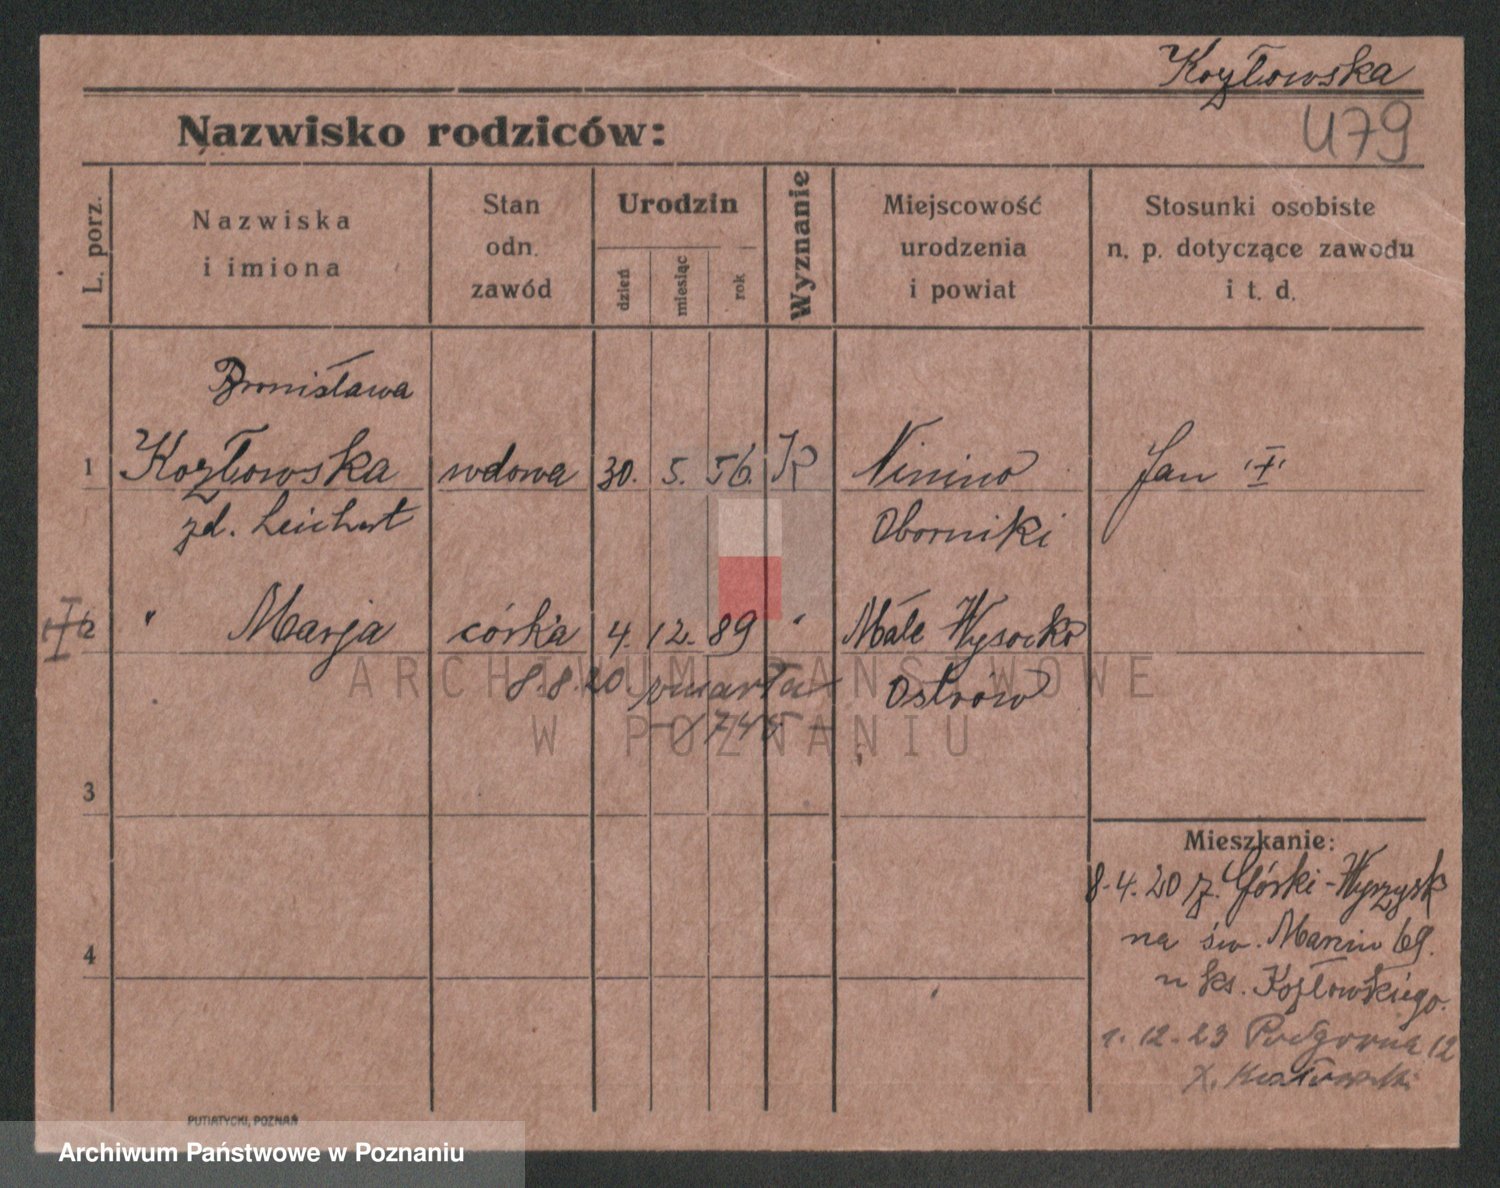 Kozłowska
Nazwisko rodziców:
479
L. porz.
Nazwiska
i imiona
Stan
odn.
zawód
Urodzin
dzień
miesiąc
rok
Wyznanie
Miejscowość
urodzenia
i powiat
Stosunki osobiste
n. p. dotyczące zawodu
i t. d.
Bronisława
1 Kozłowska wdowa 30. 5. 56. K Ninino Jan "I"
zd. Leichert Oborniki
2 " Marja córka 4. 12. 89 " Małe Wysocko
8.8.20 umarła Ostrów
1745
3
Mieszkanie:
8.4.20 z. Górki-Wyrzysk
4
na św. Marcin 69.
u ks. Kozłowskiego.
1.12.23 Podgórna 12
X. Kozłowski
PUTIATYCKI, POZNAŃ
ARCHIWUM PAŃSTWOWE
W POZNANIU
Archiwum Państwowe w Poznaniu